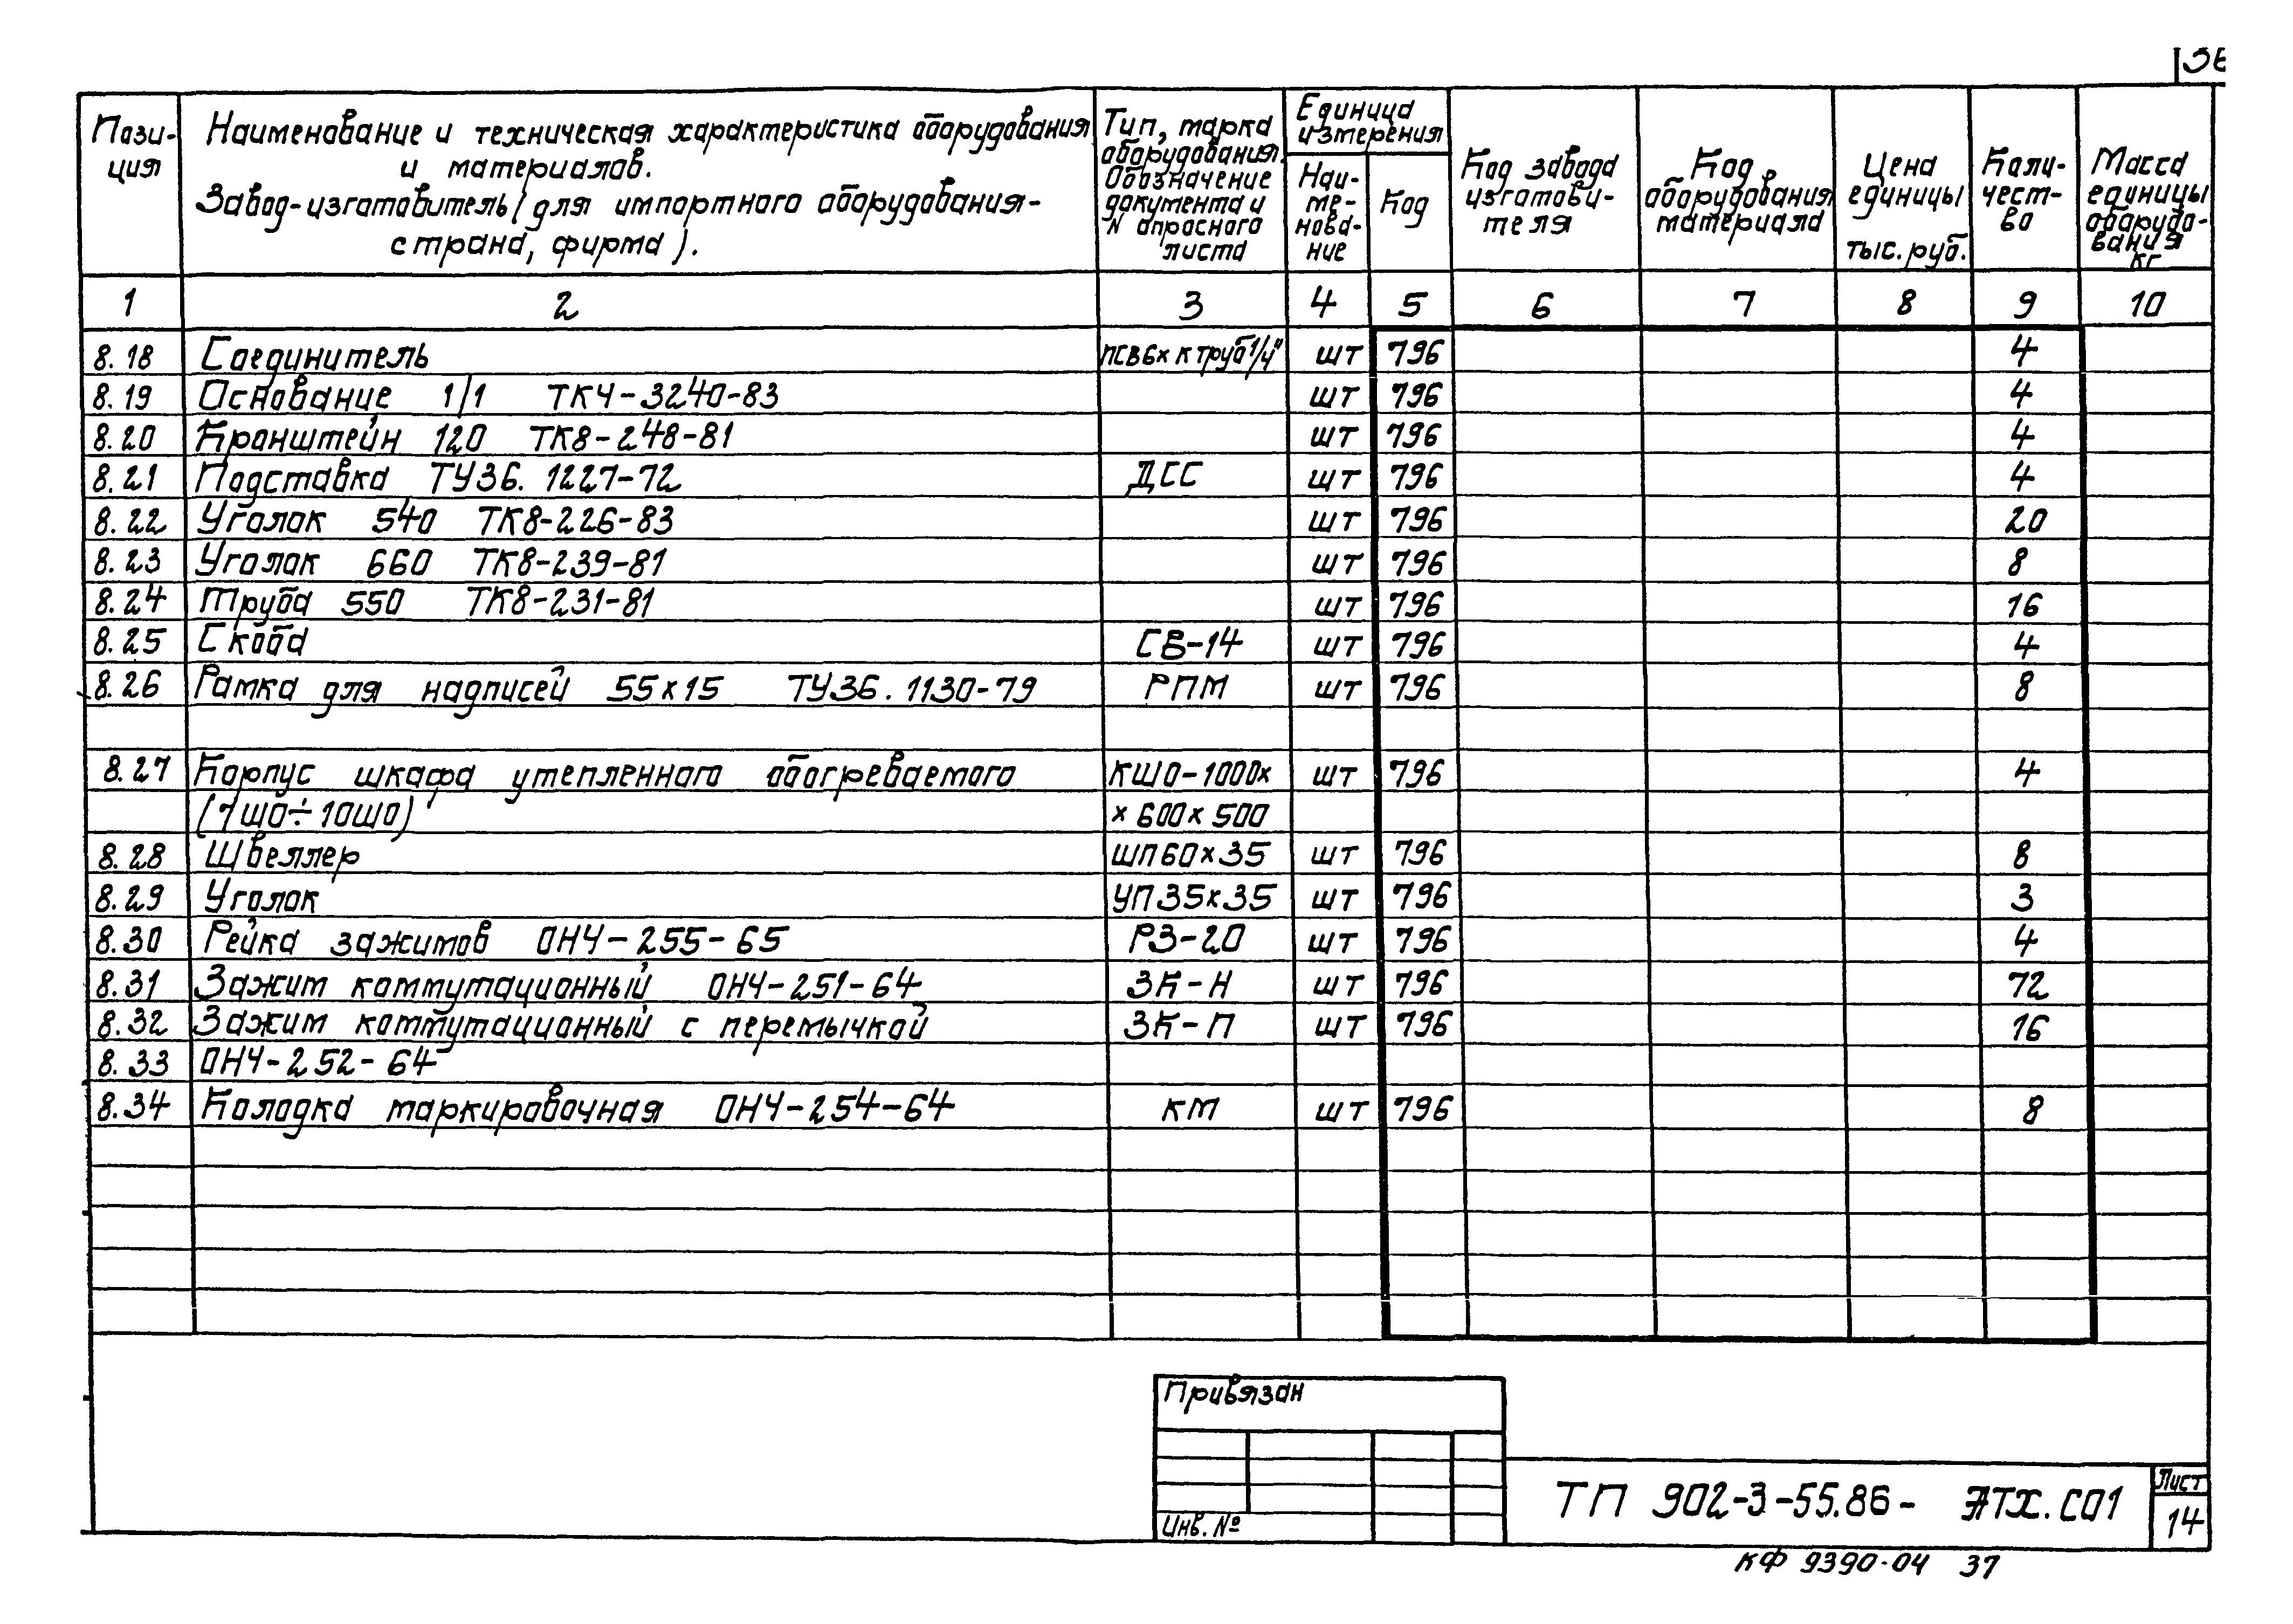 36
Пози-
ция
Наименование и техническая характеристика оборудования
и материалов.
Завод-изготовитель (для импортного оборудования-
страна, фирма).
Тип, марка
оборудования.
Обозначение
документа и
N опросного
листа
Единица
измерения
Наи-
ме-
нова-
ние
Код
Код завода
изготови-
теля
Код
оборудования
материала
Цена
единицы
тыс. руб.
Коли-
чест-
во
Масса
единицы
оборудо-
вания
кг
1 2 3 4 5 6 7 8 9 10
8.18 Соединитель ПСВ6х К труб 1/4" шт 796 4
8.19 Основание 1/1 ТК4-3240-83 шт 796 4
8.20 Кранштейн 120 ТК8-248-81 шт 796 4
8.21 Подставка ТУ36. 1227-72 ДСС шт 796 4
8.22 Уголок 540 ТК8-226-83 шт 796 20
8.23 Уголок 660 ТК8-239-81 шт 796 8
8.24 Труба 550 ТК8-231-81 шт 796 16
8.25 Скоба СВ-14 шт 796 4
8.26 Рамка для надписей 55х15 ТУ36. 1130-79 РПМ шт 796 8
8.27 Корпус шкафа утепленного обогреваемого КШО-1000х шт 796 4
(7ШО÷10ШО) х 600 х 500
8.28 Швеллер ШП60х35 шт 796 8
8.29 Уголок УП35х35 шт 796 3
8.30 Рейка зажимов ОН4-255-65 РЗ-20 шт 796 4
8.31 Зажим коммутационный ОН4-251-64 ЗК-Н шт 796 72
8.32 Зажим коммутационный с перемычкой ЗК-П шт 796 16
8.33 ОН4-252-64
8.34 Колодка маркировочная ОН4-254-64 КМ шт 796 8
Привязан
Инв. №
ТП 902-3-55.86- ЭТХ.СО1
Лист
14
КФ 9390-04 37